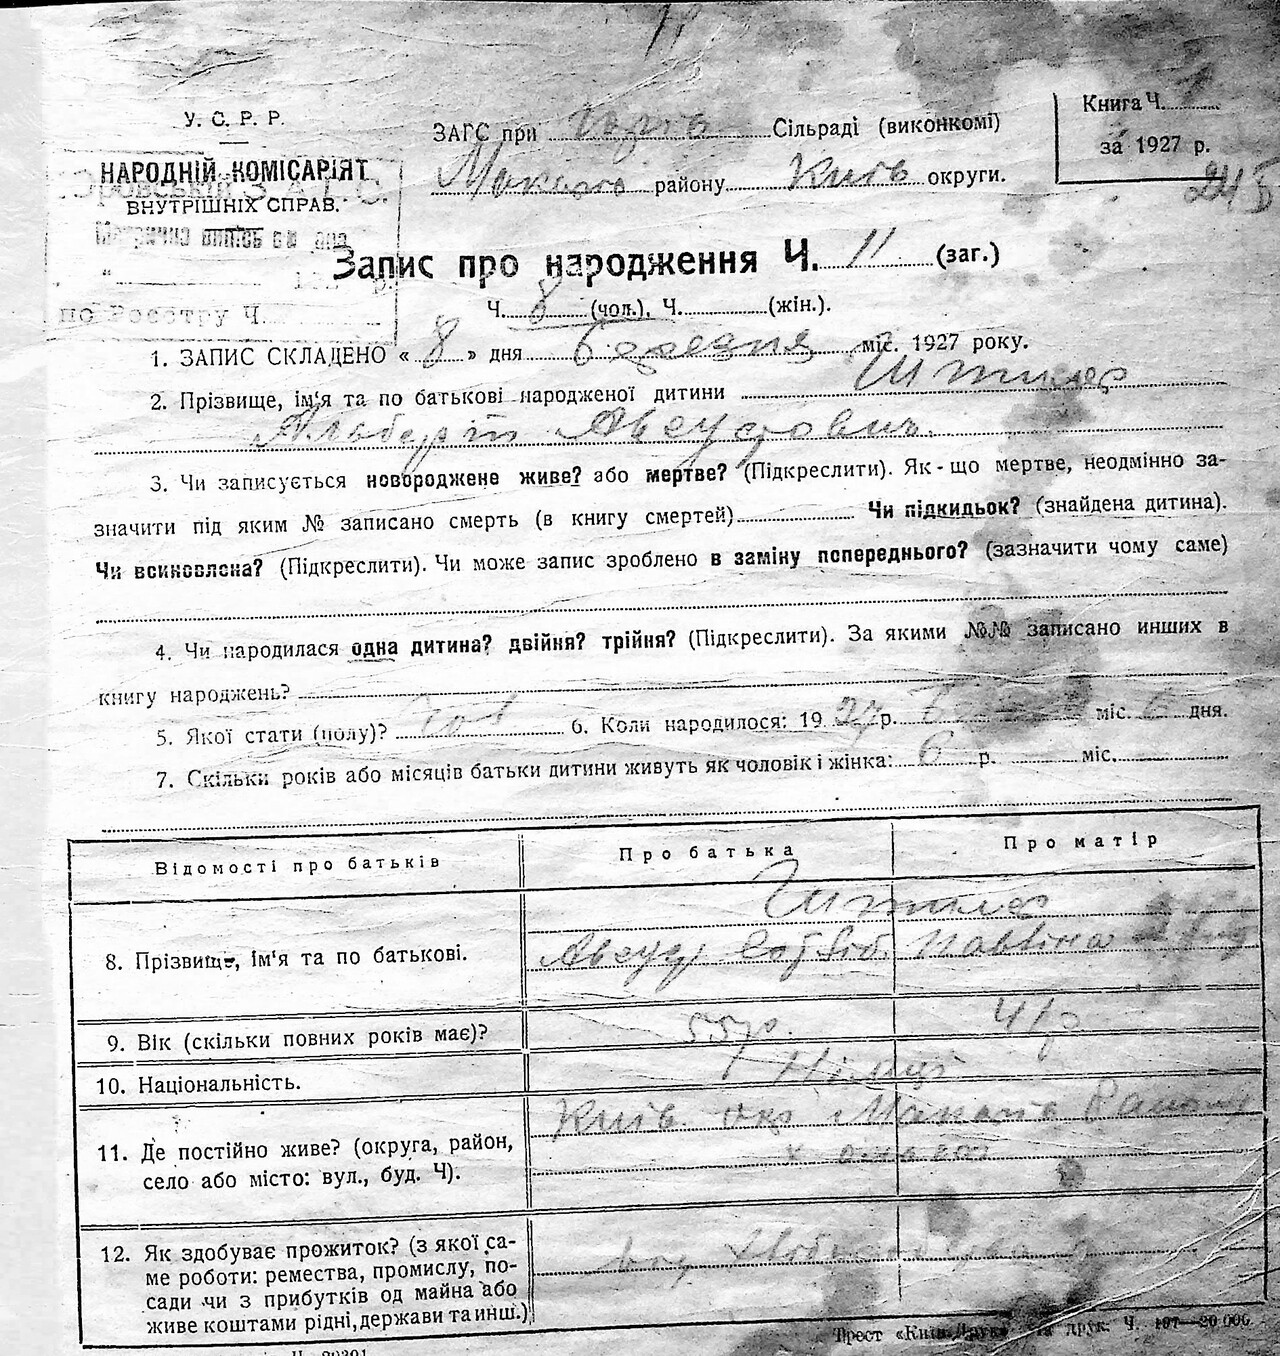 У. С. Р. Р.
НАРОДНІЙ КОМІСАРІЯТ
ВНУТРІШНІХ СПРАВ.
ЗАГС при Сільраді (виконкомі)
Макарів району Київ округи.
Книга Ч.
за 1927 р.
24
З.А.Г.С.
по Реєстру Ч.
Запис про народження Ч. 11 (заг.)
Ч. 8 (чол.), Ч. (жін.).
1. ЗАПИС СКЛАДЕНО « 8 » дня березня міс. 1927 року.
2. Прізвище, ім'я та по батькові народженої дитини Штилер
Альберт Августович.
3. Чи записується новороджене живе? або мертве? (Підкреслити). Як-що мертве, неодмінно за-
значити під яким № записано смерть (в книгу смертей) Чи підкидьок? (знайдена дитина).
Чи всиновлена? (Підкреслити). Чи може запис зроблено в заміну попереднього? (зазначити чому саме)
4. Чи народилася одна дитина? двійня? трійня? (Підкреслити). За якими №№ записано инших в
книгу народжень?
5. Якої стати (полу)? чол 6. Коли народилося: 1927 р. міс. 6 дня.
7. Скільки років або місяців батьки дитини живуть як чоловік і жінка: 6 р. міс.
Відомості про батьків Про батька Про матір
8. Прізвище, ім'я та по батькові.
Штилер
Август Павліна
9. Вік (скільки повних років має)? 55 р. 41 р
10. Національність. Німці
11. Де постійно живе? (округа, район,
село або місто: вул., буд. Ч).
Київ окр Макарів
12. Як здобуває прожиток? (з якої са-
ме роботи: ремества, промислу, по-
сади чи з прибутків од майна або
живе коштами рідні, держави та инш.)
Трест «Київ-Друк» друк. Ч. 107—20 000